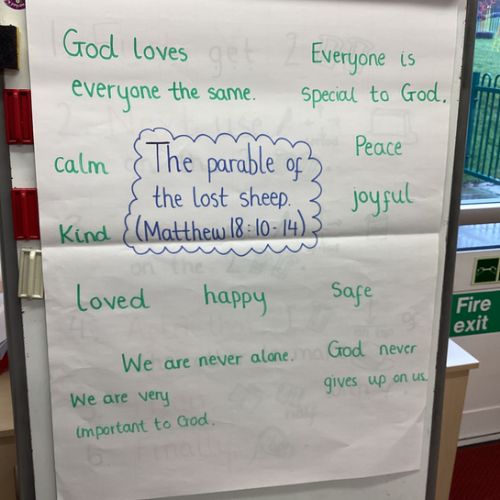 God loves
everyone the same.
Everyone is
special to God.
calm
The parable of
the lost sheep.
(Matthew 18:10-14)
Peace
joyful
Kind
loved
happy
Safe
We are never alone.
God never
gives up on us.
We are very
important to God.
Fire
exit